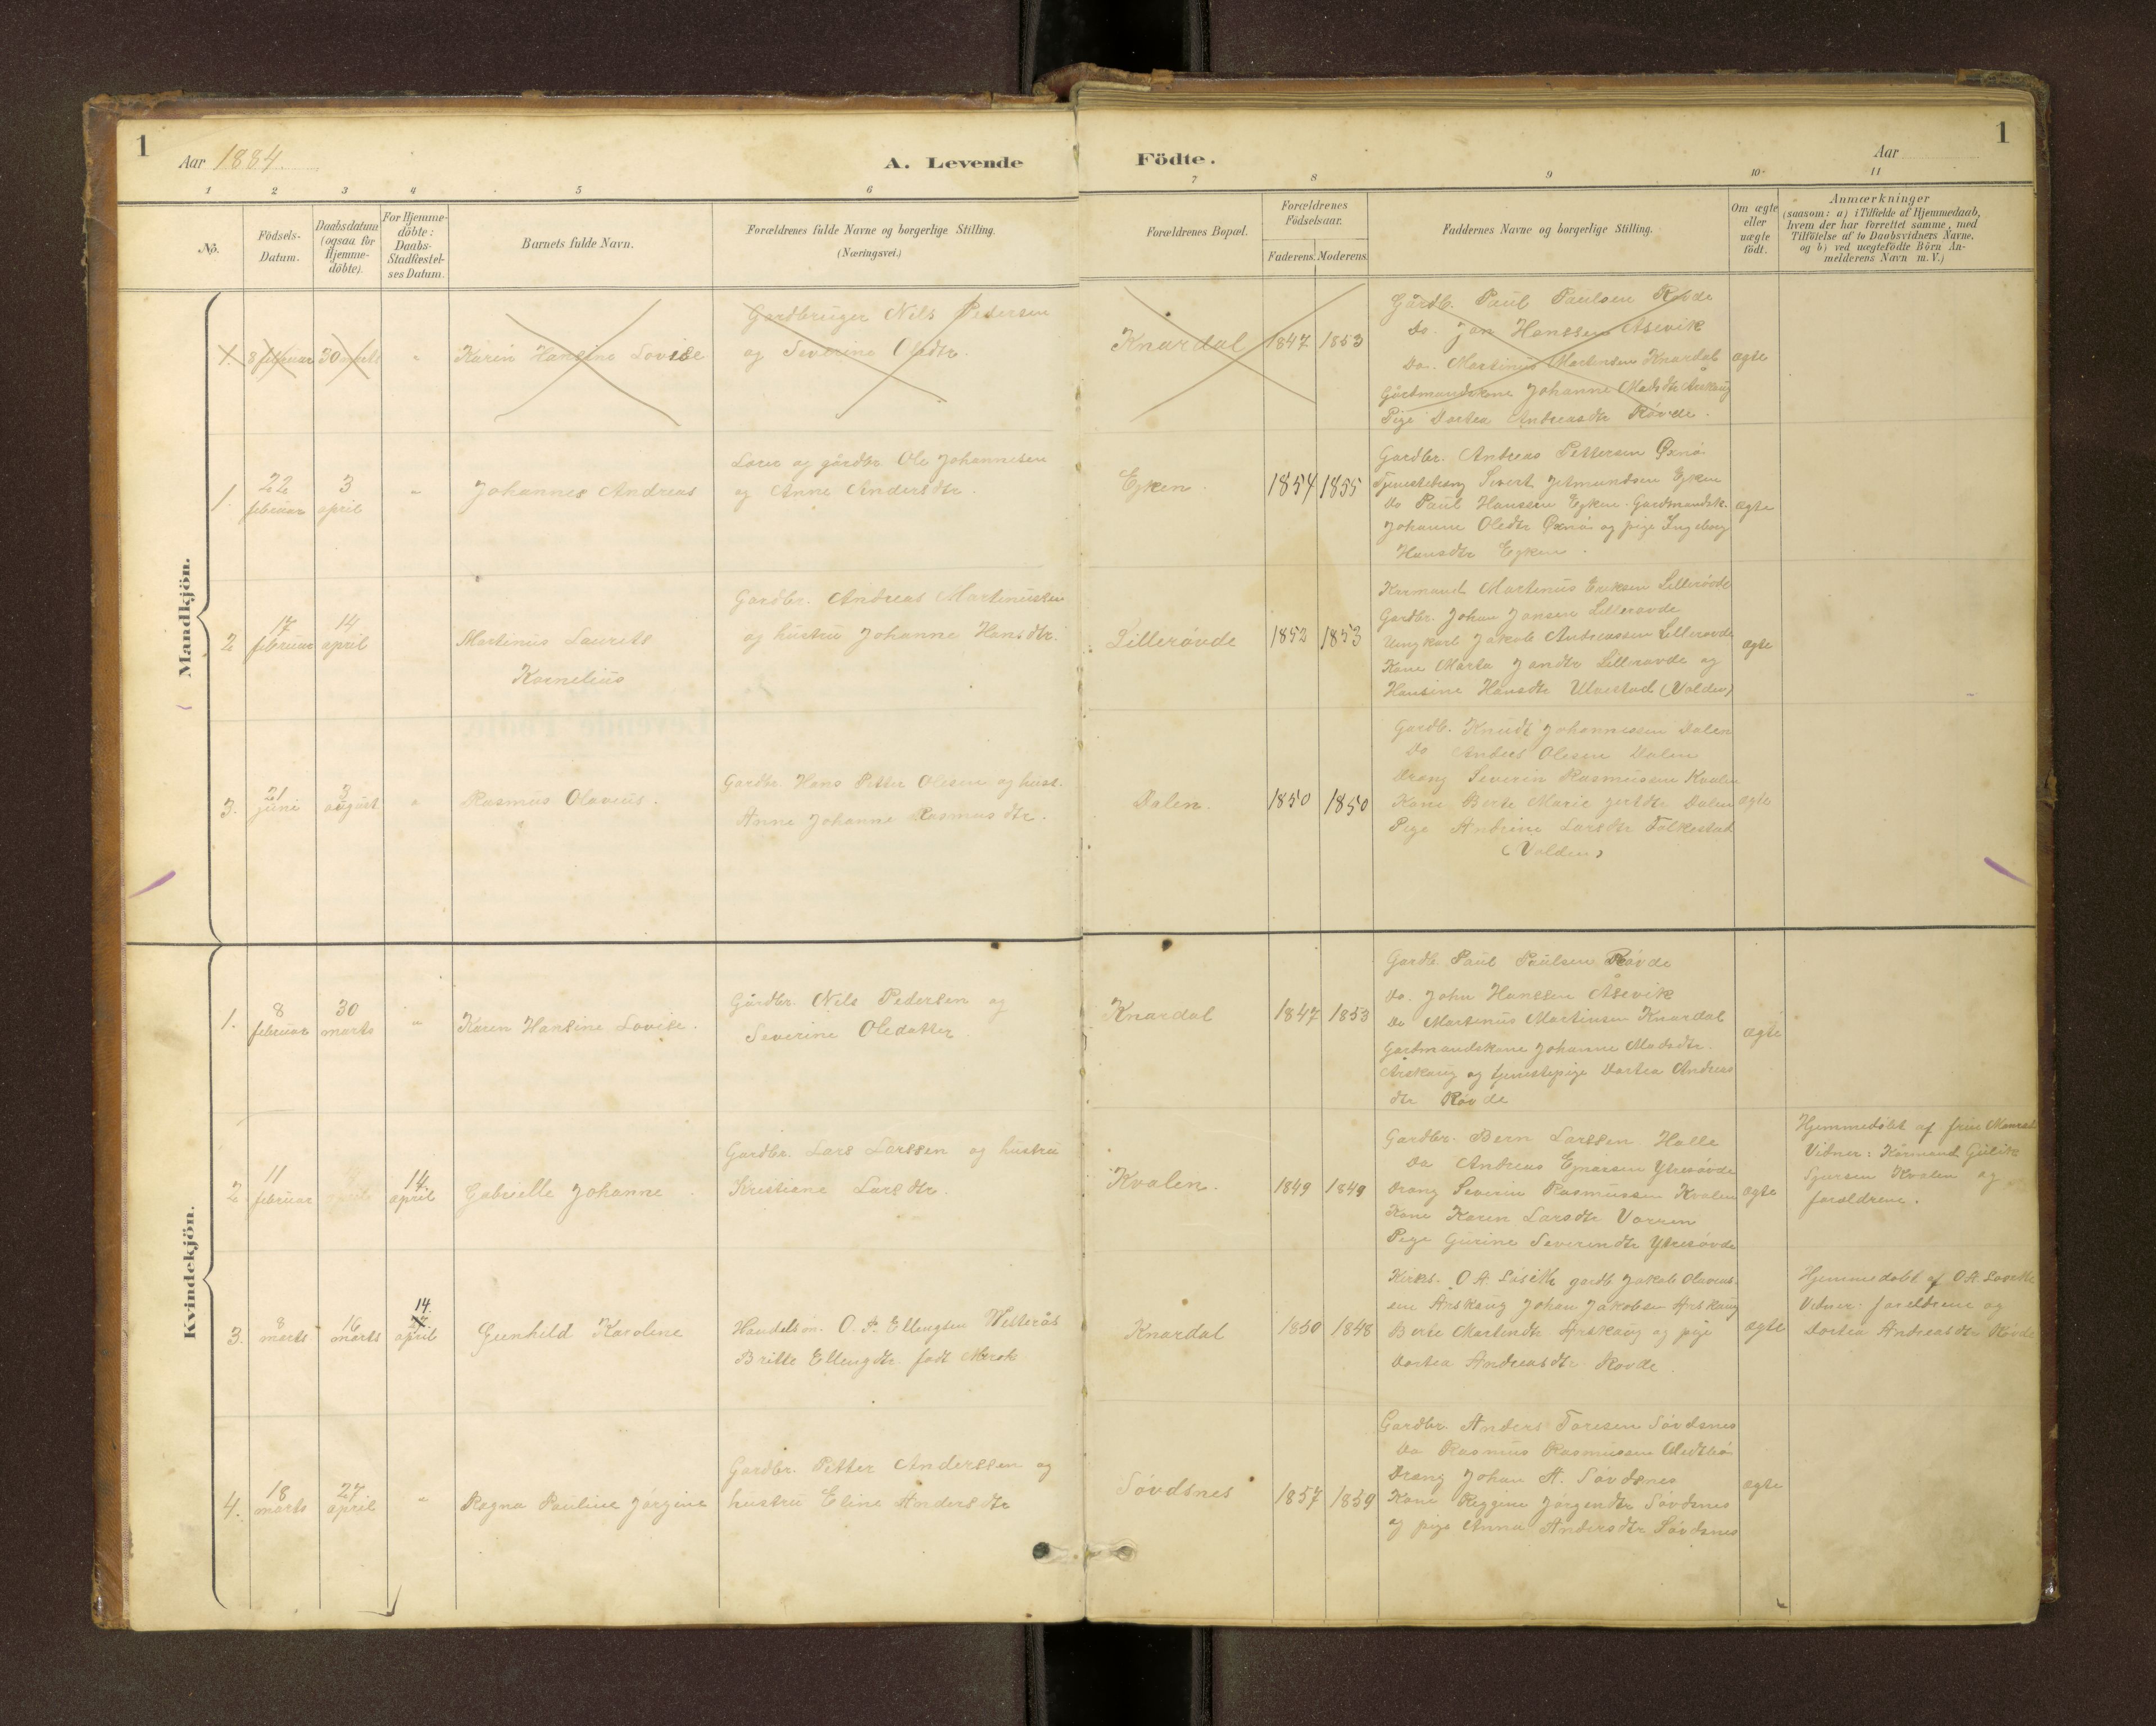 1
Aar 1884.
A. Levende
Födte.
Aar
1
1 2 3 4 5 6 7 8 9 10 11
No.
Födsels-Datum.
Daabsdatum (ogsaa för Hjemmedöbte).
For Hjemmedöbte: Daabs-Stadfæstelses Datum.
Barnets fulde Navn.
Forældrenes fulde Navne og borgerlige Stilling. (Næringsvei.)
Forældrenes Bopæl.
Forældrenes Födselsaar.
Faderens. Moderens.
Faddernes Navne og borgerlige Stilling.
Om ægte eller uægte födt.
Anmærkninger
(saasom: a) i Tilfælde af Hjemmedaab,
hvem der har forrettet samme, med
Tilföielse af to Daabsvidners Navne.
og b) ved uægtefödte Börn An-
melderens Navn m. V.)
Mandkjön.
1. 8 februar 30 " Karin Hansine Lovise
Gardbruger Nils Pedersen
og Severine Olsdtr.
Knardal 1847 1853
Gårdb. Paul Paulsen Røvde
Do. Jon Hanssen Åsevik
Do. Martinus Martinsen Knardal
Gårdmandskone Johanne Madsdtr Årskaug
Pige Dortea Andreasdtr Røvde.
ægte
1. 22 februar 3 april " Johannes Andreas
Lærer og gårdbr Ole Johannesen
og Anne Andersdtr.
Ejken. 1854 1855
Gardbr. Andreas Pettersen Øxnö
Tjenestedreng Sivert Jetmundsen Ejken
Do Paul Hanssen Ejken. Gardmandsk.
Johanne Oledtr Øxnö og pige Ingeborg
Hansdtr Ejken.
ægte
2 17 februar 14 april Martinus Laurits
Kornelius
Gardbr. Andreas Martinussen
og hustru Johanne Hansdtr.
Lillerøvde 1852 1853
Kaarmand Martinus Eriksen Lillerøvde
Gardbr. Johan Jansen Lillerøvde
Ungkarl Jakob Andreassen Lillerøvde
Kone Marta Jandtr Lillerøvde og
Hansine Hansdtr Ulvestad (Volden)
ægte
3. 21 juni 3 august " Rasmus Olavius.
Gardbr. Hans Petter Olesen og hust.
Anne Johanne Rasmusdtr.
Dalen. 1850 1850
Gardb. Knudt Johannessen Dalen
Do Anders Olesen Dalen
Dreng Severin Rasmussen Kvalen
Kone Berte Marie Jertdtr Dalen
Pige Andrine Larsdtr Folkestad
(Volden)
ægte
Kvindekjön.
1. 8 februar 30 marts " Karen Hansine Lovise.
Gårdbr. Nils Pedersen og
Severine Oledatter
Knardal 1847 1853
Gardb. Paul Paulsen Røvde
Do. John Hanssen Åsevik
Do Martinus Martinsen Knardal
Gardmandskone Johanne Madsdtr.
Årskaug og tjenestepige Dortea Andreas
dtr Røvde
ægte
2 11 februar april 14. april Gabrielle Johanne.
Gardbr. Lars Larssen og hustru
Kristiane Larsdtr.
Kvalen. 1849 1849
Gardbr. Bern Larssen Halle
Do Andreas Ejnarsen Ytrerøvde
Dreng Severin Rasmussen Kvalen
Kone Karen Larsdtr Vorren
Pige Gurine Severindtr Ytrerøvde
ægte
Hjemmedöbt af fru
Vidner: Kårmand Gulik
Sjursen Kvalen og
forældrene.
3. 8 marts 16 marts 14. 27. april Gunhild Karoline
Handelsm. O. P. Ellingsen Welterås
Britte Ellingdtr. født
Knardal 1850 1848
Kirkes. O A Løseth gardb Jakob Olavius-
sen Årskaug Johan Jakobsen Arskaug
Berte Martindtr Årskaug og pige
Dortea Andreasdtr Røvde.
ægte
Hjemmedøbt af O A Løseth
Vidner: forældrene og
Dortea Andreasdtr Røvde
4. 18 marts 27 april " Ragna Pauline Jörgine
Gardbr. Petter Anderssen og
hustru Eline Andersdtr
Søvdsnes 1857 1859
Gardbr Anders Toresen Søvdsnes
Do Rasmus Rasmussen
Dreng Johan A. Søvdsnes
Kone Reggine Jörgendtr Søvdsnes
og pige Anna Andersdtr Søvdsnes
ægte